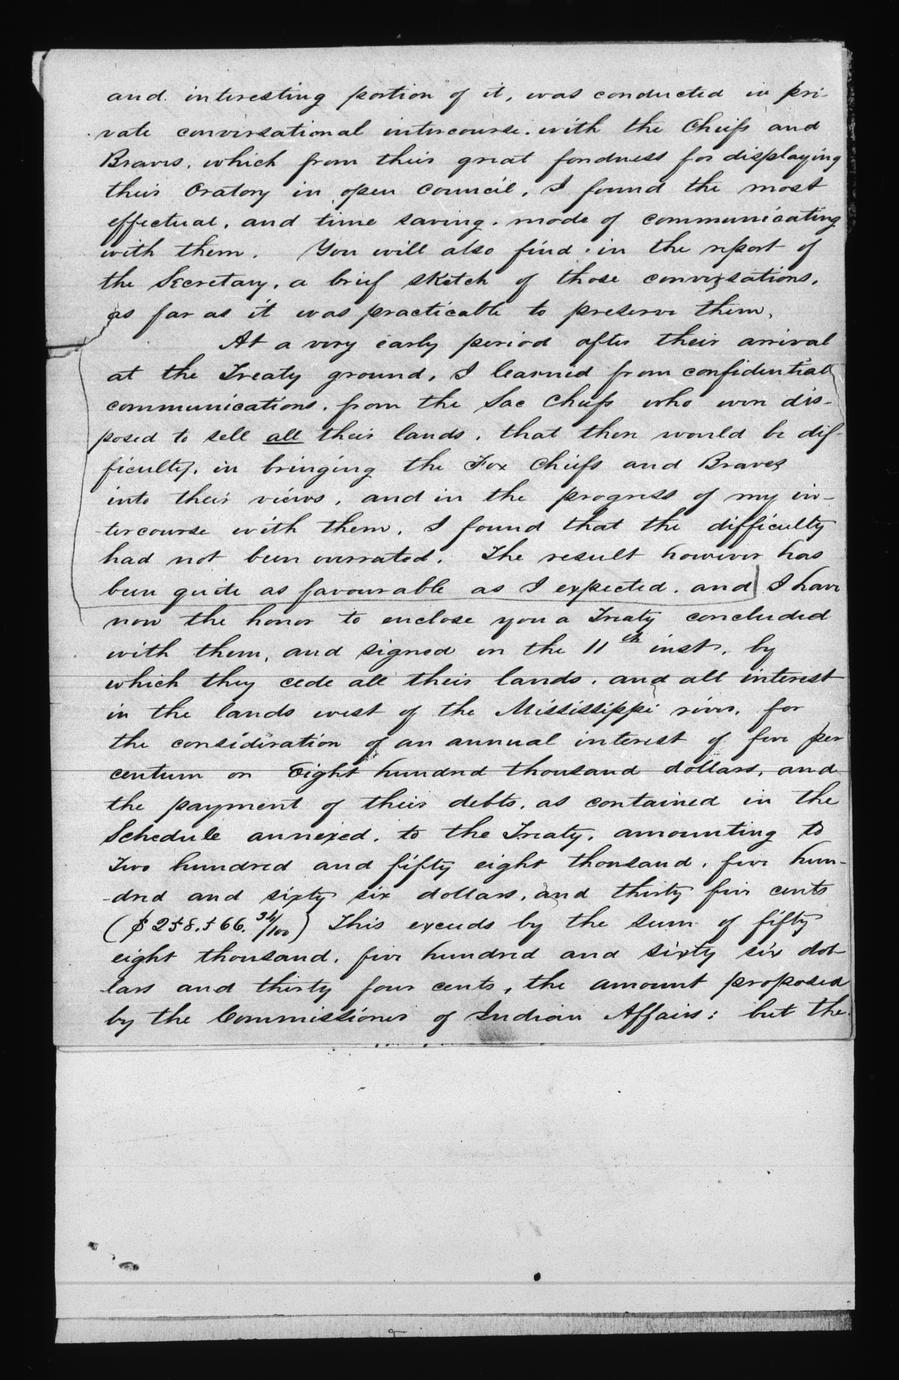 and interesting portion of it, was conducted in pri-
vate conversational intercourse with the Chiefs and
Braves, which from their great fondness for displaying
their Oratory in open council, I found the most
effectual, and time saving, mode of communicating
with them. You will also find in the report of
the Secretary, a brief sketch of those conversations,
as far as it was practicable to preserve them,
At a very early period after their arrival
at the Treaty ground, I learned from confidential
communications, from the Sac Chiefs who were dis-
posed to sell all their lands, that there would be dif-
ficulty, in bringing the Fox Chiefs and Braves
into their views, and in the progress of my in-
tercourse with them, I found that the difficulty
had not been overrated. The result however has
been quite as favourable as I expected, and I have
now the honor to enclose you a Treaty concluded
with them, and signed on the 11th inst, by
which they cede all their lands, and all interest
in the lands west of the Mississippi river, for
the consideration of an annual interest of five per
centum on Eight hundred thousand dollars, and
the payment of their debts, as contained in the
Schedule annexed, to the Treaty, amounting to
Two hundred and fifty eight thousand, five hun-
-dred and sixty six dollars, and thirty four cents
($258.566.34/100) This exceeds by the sum of fifty
eight thousand, five hundred and sixty six dol-
lars and thirty four cents, the amount proposed
by the Commissioner of Indian Affairs; but the